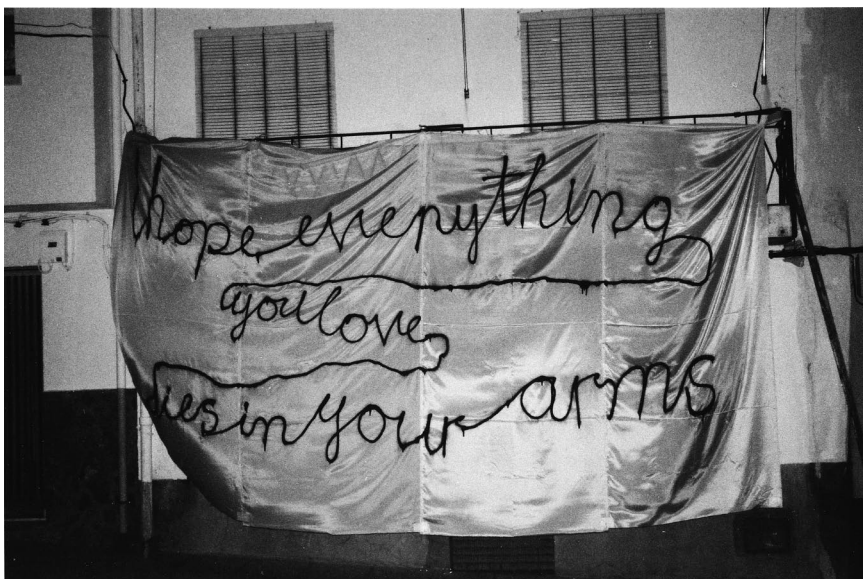 I hope everything
you love
dies in your arms